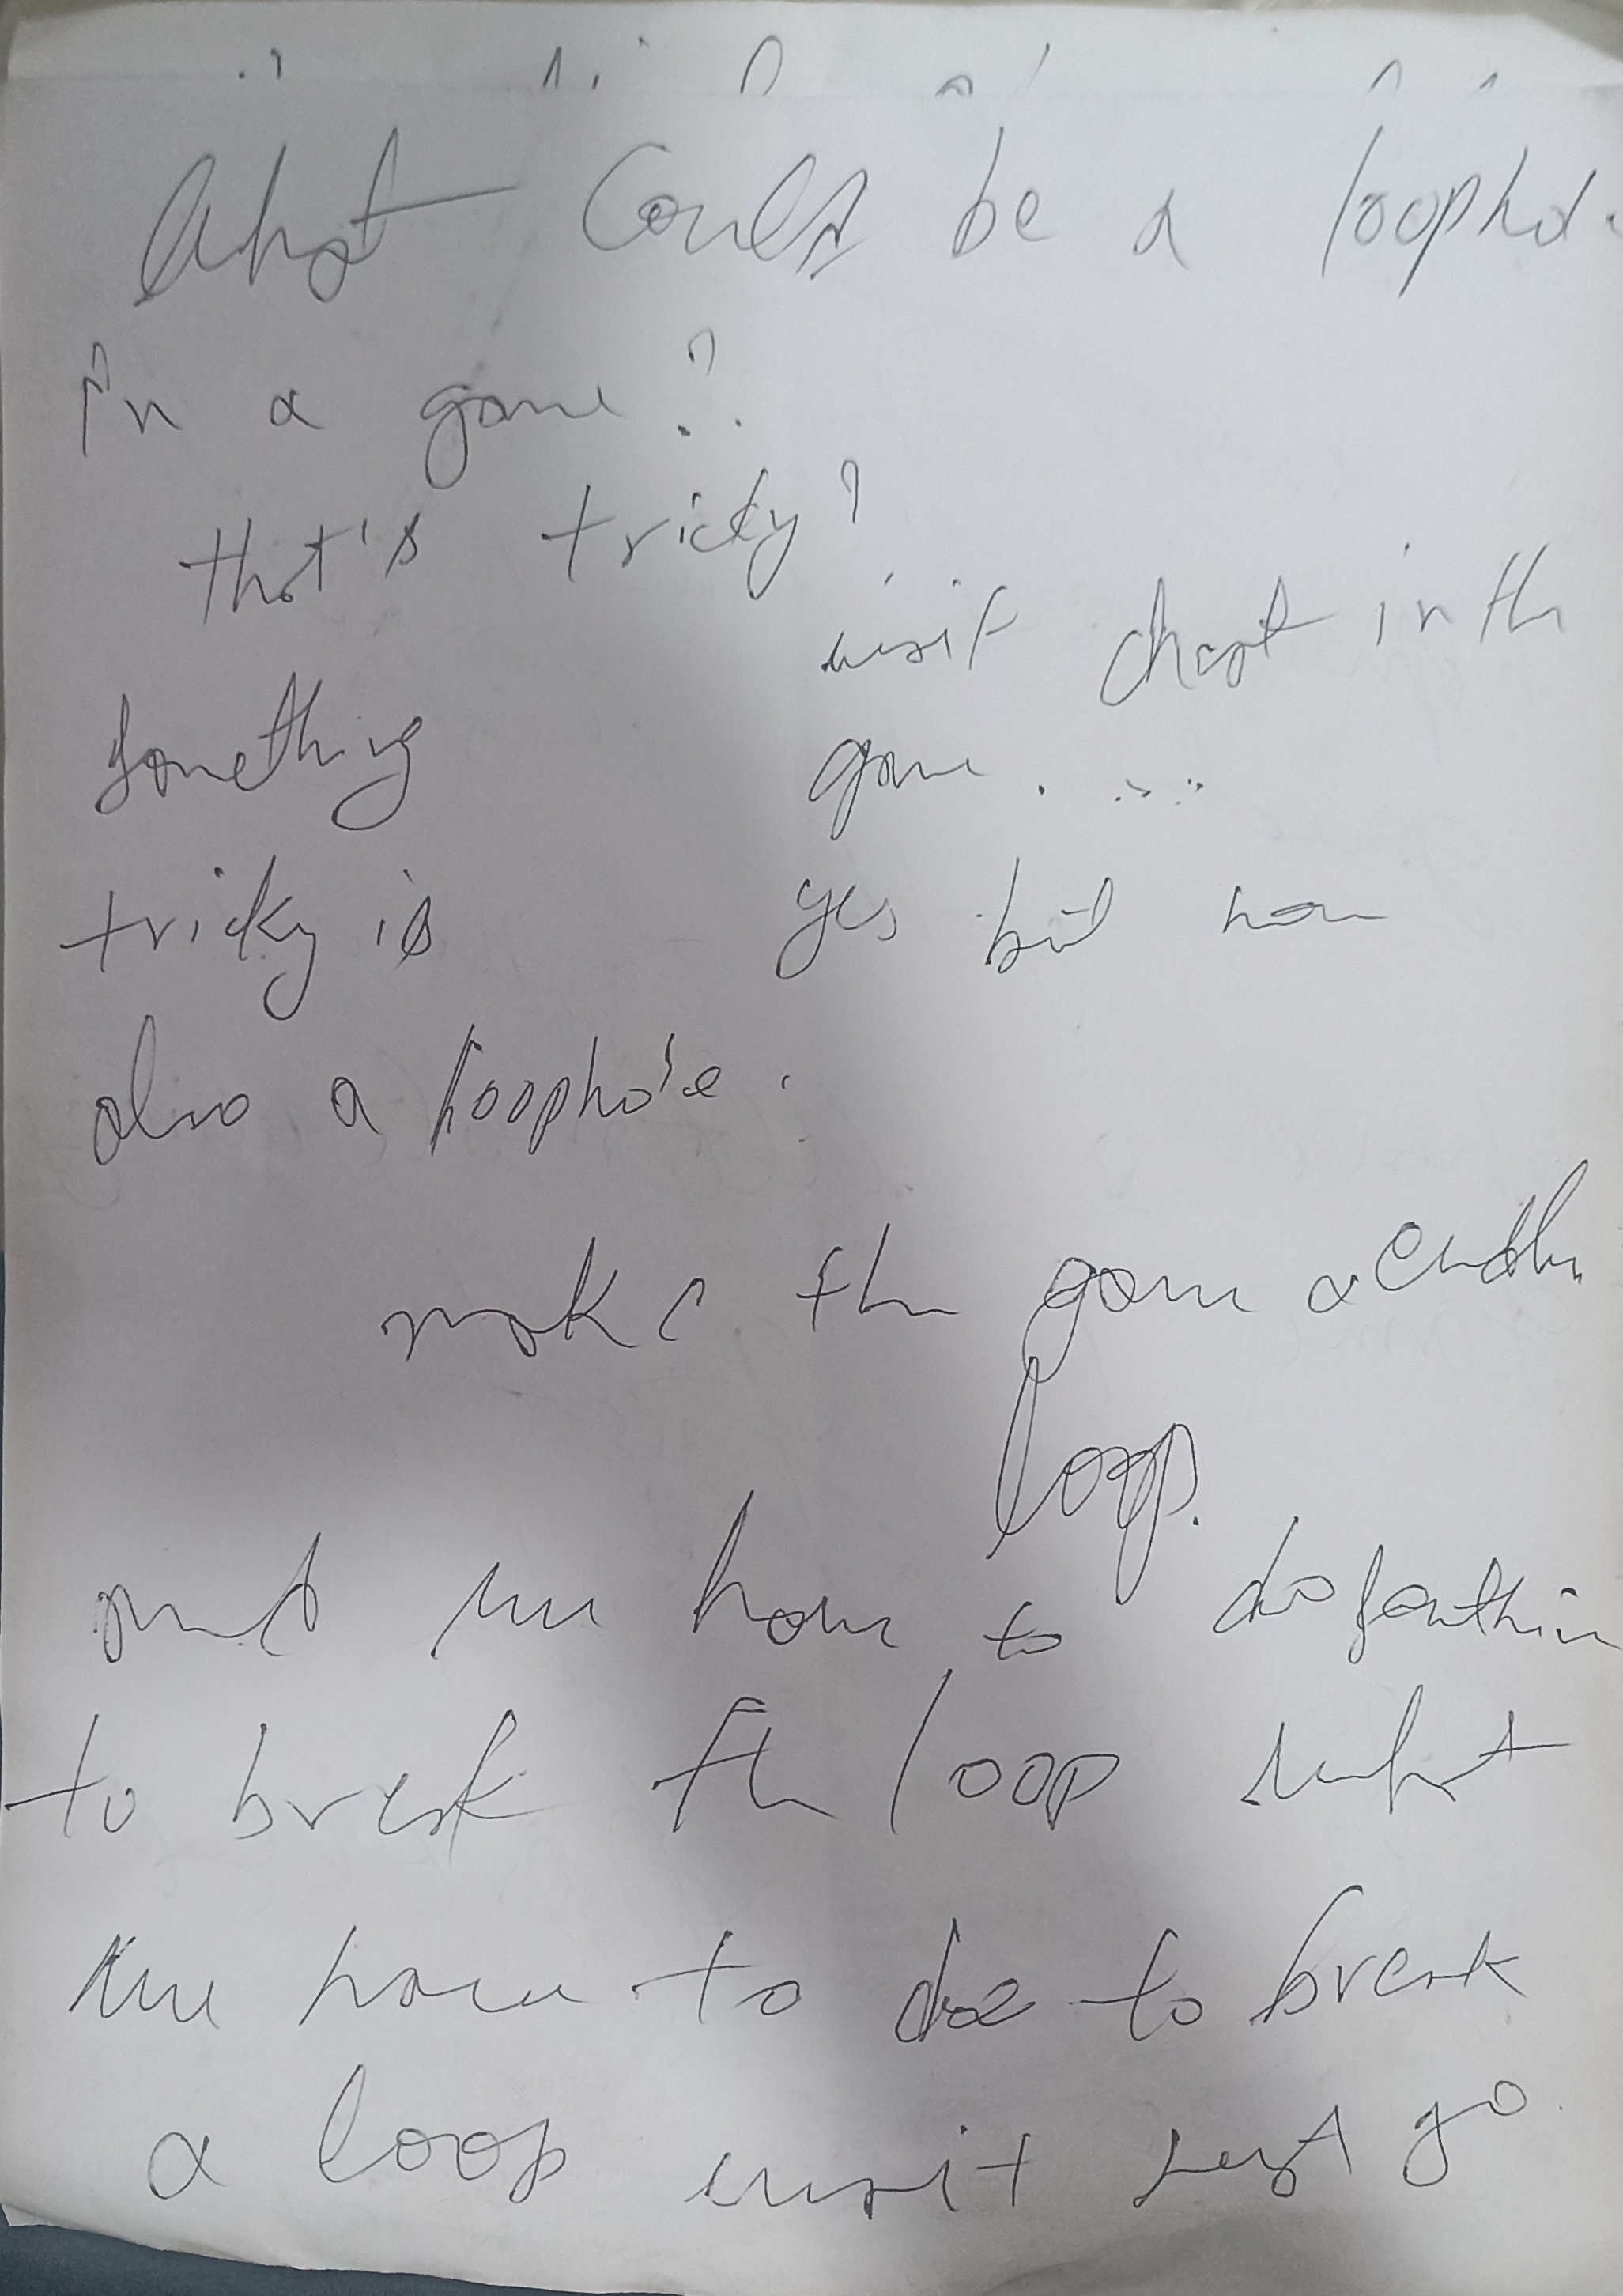 What Could be a loophol
in a game?
that's tricky?
something
tricky is
also a loophole.
wait cheat in th
game....
yes but how
make the game a endles
loop.
and we have to do
to break the loop what
we have to do to break
a loop wait let go